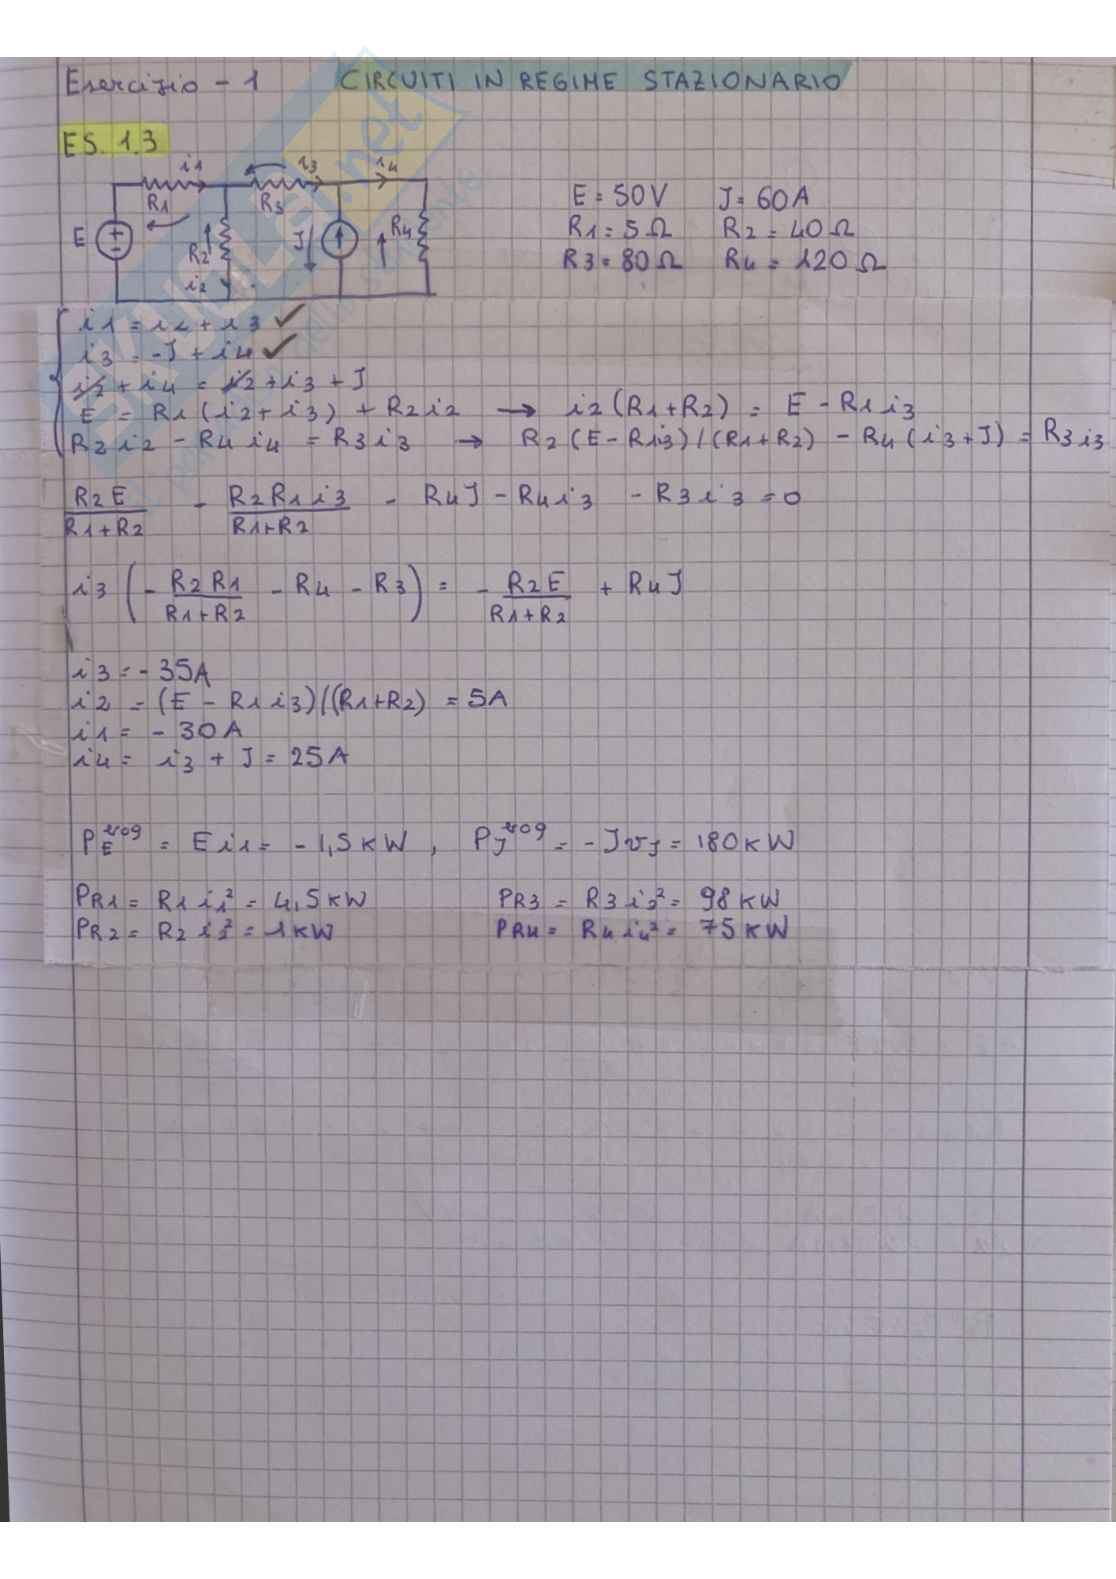 Esercizio - 1 CIRCUITI IN REGIME STAZIONARIO
ES. 1.3
i1 i3 i4
R1 R3
E R2 J R4
i2
E = 50V J = 60A
R1 = 5Ω R2 = 40Ω
R3 = 80Ω R4 = 120Ω
i1 = i2 + i3 ✓
i3 = -J + i4 ✓
i2 + i4 = i2 + i3 + J
E = R1 (i2 + i3) + R2 i2 → i2 (R1+R2) = E - R1 i3
R2 i2 - R4 i4 = R3 i3 → R2 (E - R1 i3) / (R1+R2) - R4 (i3 + J) = R3 i3
R2 E / R1+R2 - R2 R1 i3 / R1+R2 - R4 J - R4 i3 - R3 i3 = 0
i3 ( - R2 R1 / R1+R2 - R4 - R3 ) = - R2 E / R1+R2 + R4 J
i3 = - 35A
i2 = (E - R1 i3) / (R1+R2) = 5A
i1 = - 30A
i4 = i3 + J = 25A
PE erog = E i1 = - 1,5 kW , PJ erog = - J vJ = 180 kW
PR1 = R1 i1² = 4,5 kW PR3 = R3 i3² = 98 kW
PR2 = R2 i2² = 1 kW PR4 = R4 i4² = 75 kW